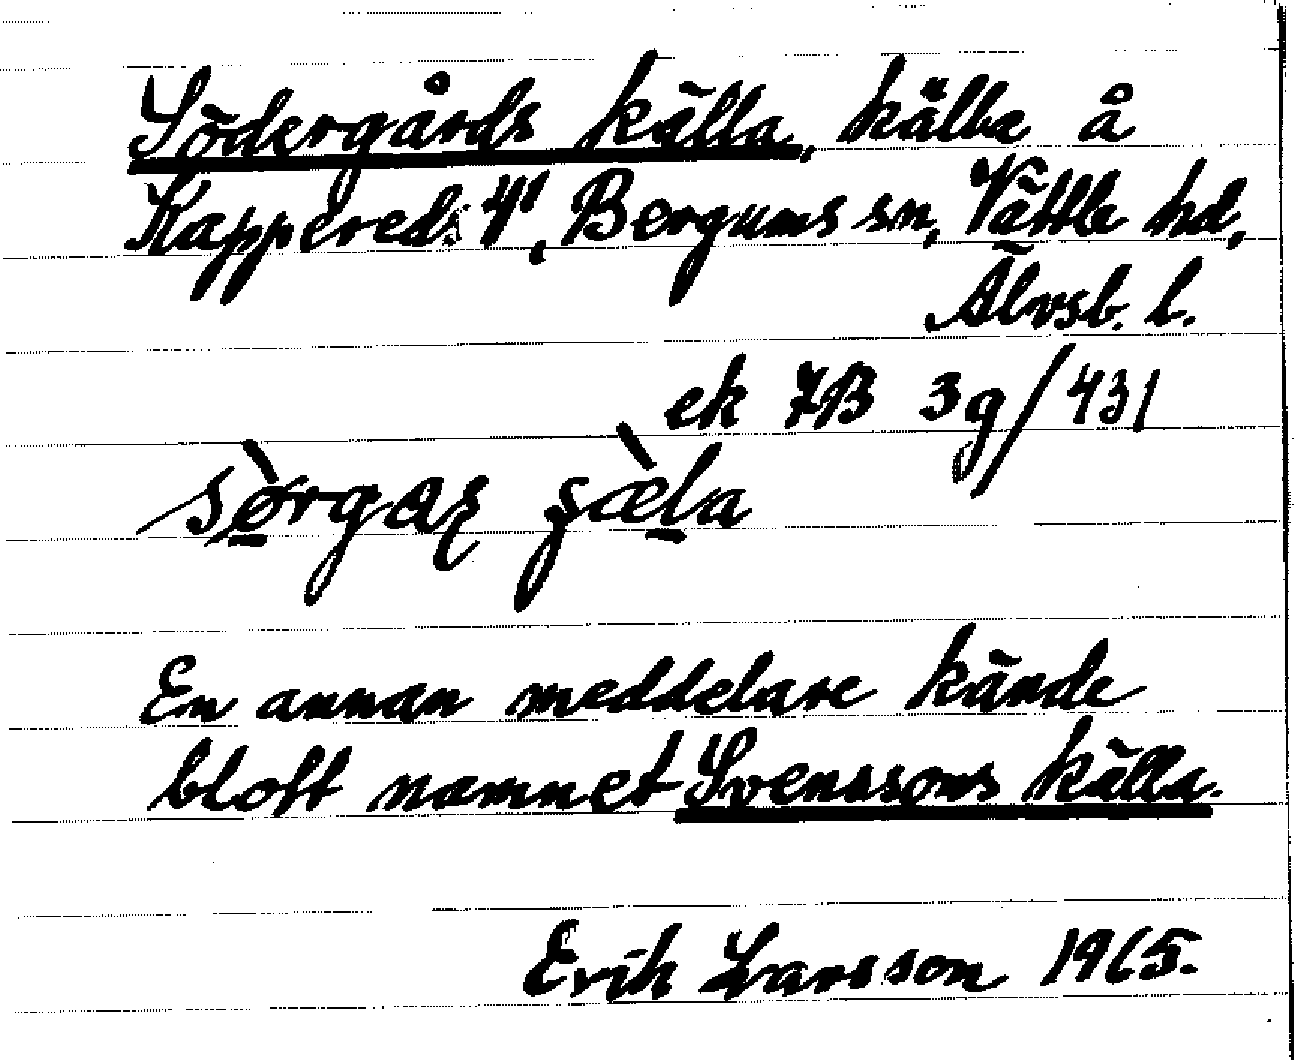 Södergårds källa, källa å
Kappered 4¹, Bergums sn, Vättle hd,
Älvsb. l.
ek 7B 3g/431
sø̀rgaʂ ʂæ̀la
En annan meddelare kände
blott namnet Svenssons källa.
Erik Larsson 1965.